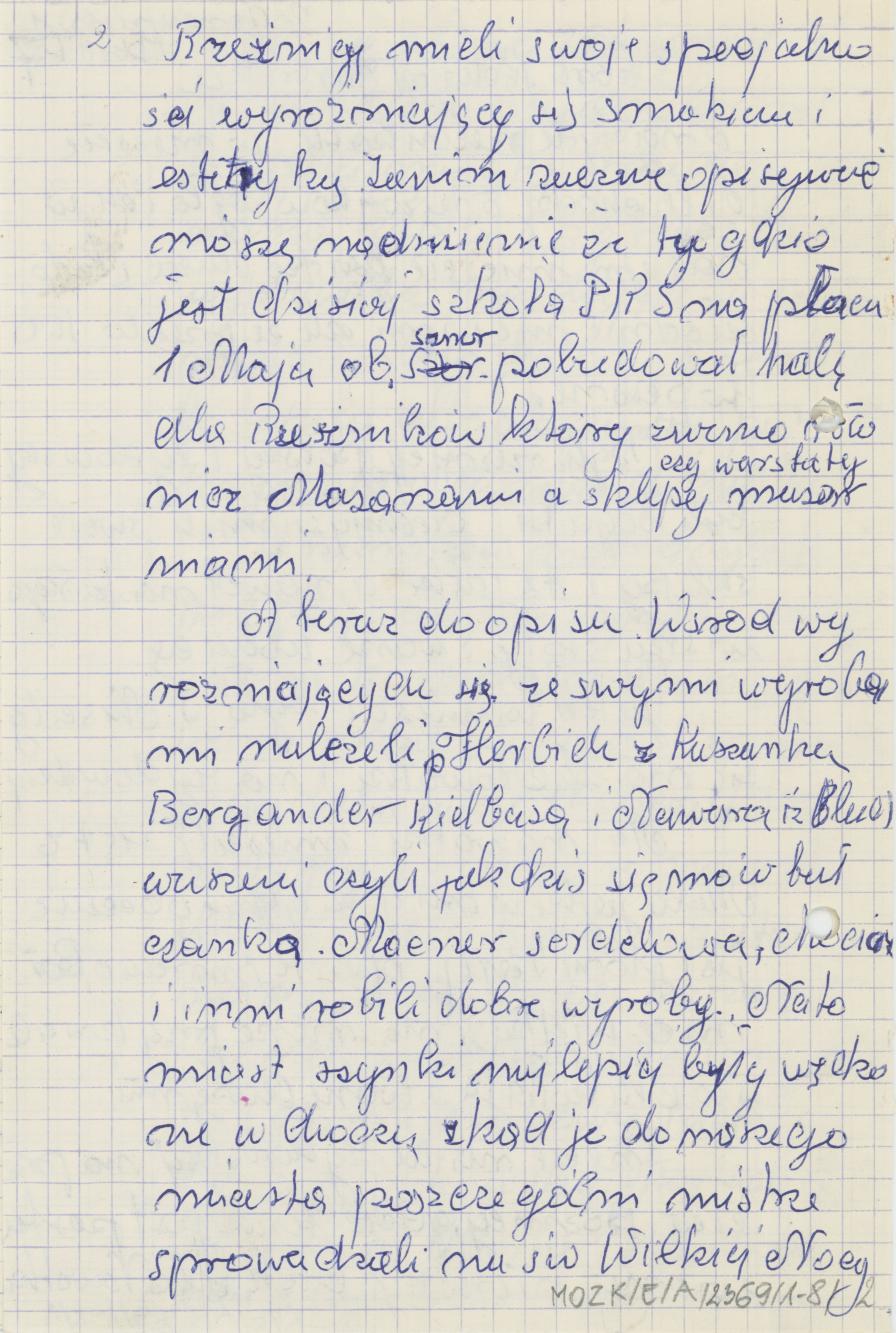 2 Rzeźnicy mieli swoje specjalno
ści wyrożniający się smakiem i
estetyką Zanim zaczne opisywać
muszę nadmienić że tu gdzie
jest dzisiaj szkoła PPS na placu
1 Maja ob. pobudował halę
dla Rzeźników który zwano
czy warstaty
niez Masarzami a sklepy masar
niami.
A teraz do opisu. Wśrod wy
rożniających się ze swymi wyroba
mi należeli p Herbich z Kaszanką
Bergander kiełbasą i
czyli jak dziś się mowi buł
czanką. serdelowa, chociaż
i inni robili dobre wyroby. Nato
miast szynki najlepiej były wędzo
ne w Choczu, zkąd je do naszego
miasta poszczegolni mistrze
sprowadzali na św Wilkiej Nocy
MOZK/E/A/2369/1-8/2